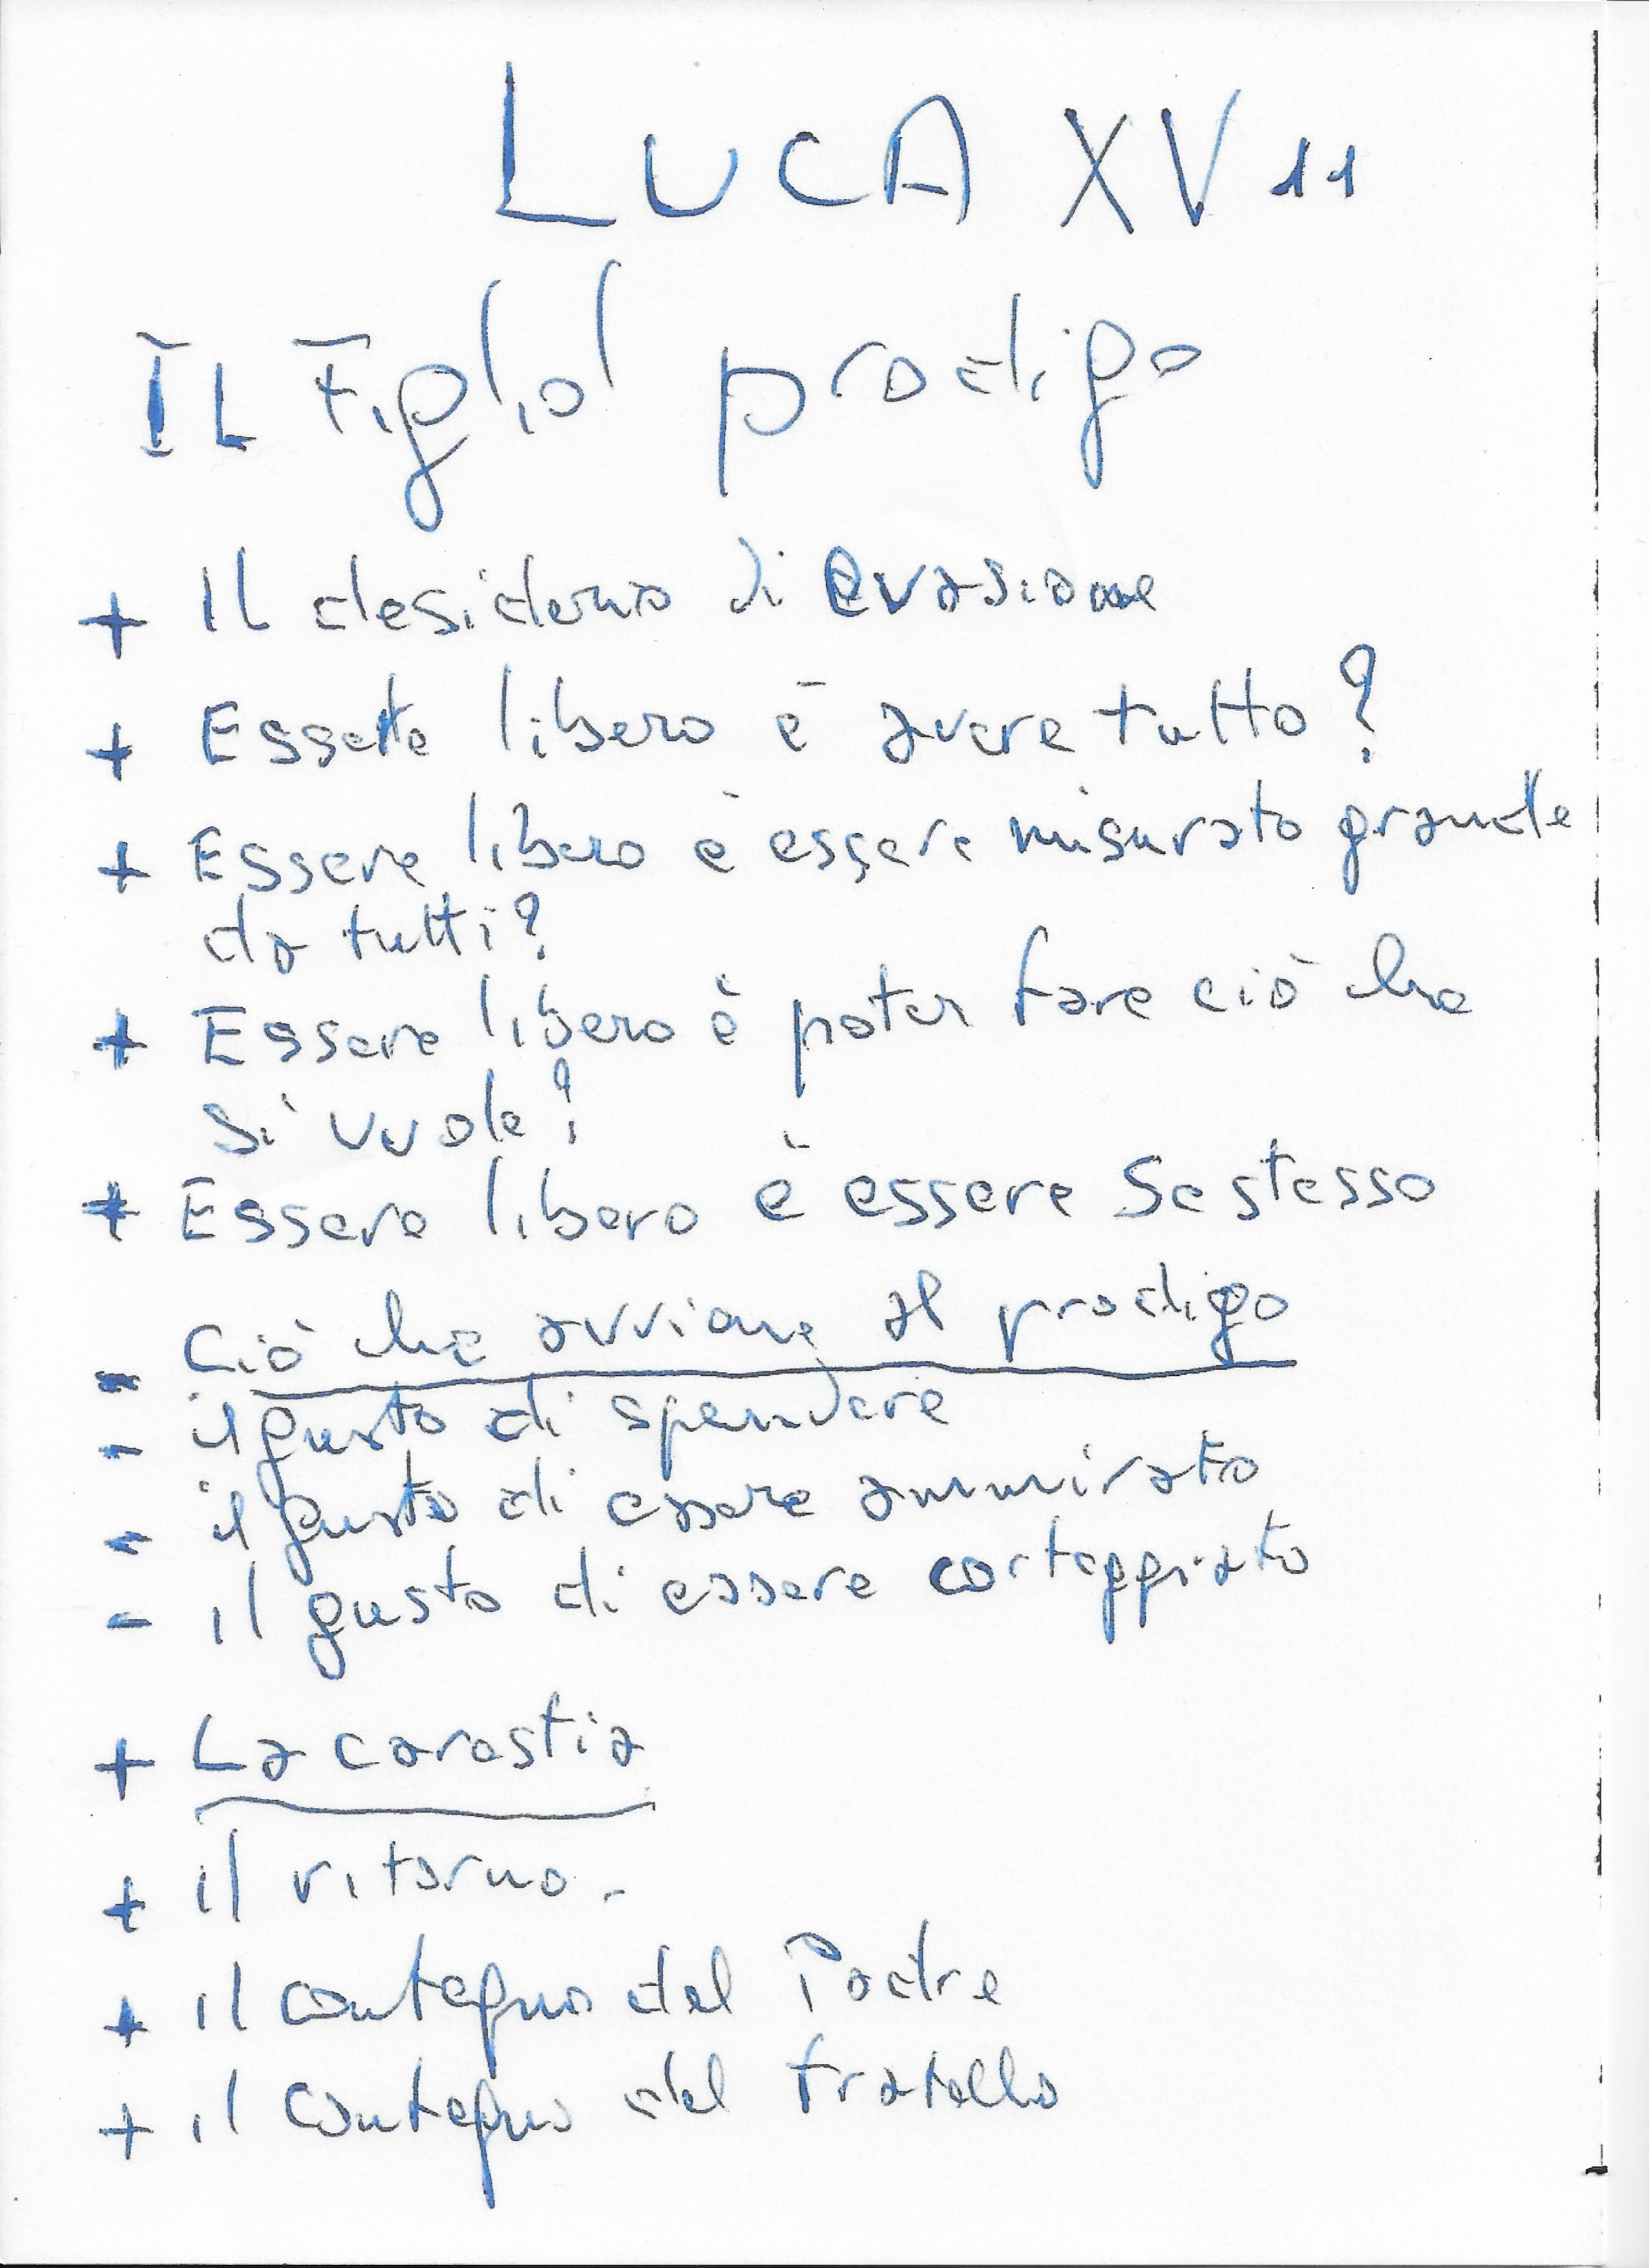 LUCA XV 11
IL Figliol prodigo
+ Il desiderio di evasione
+ Essere libero è avere tutto?
+ Essere libero è essere misurato grande
da tutti?
+ Essere libero è poter fare ciò che
si vuole?
+ Essere libero è essere se stesso
- Ciò che avviene al prodigo
- il gusto di spendere
- il gusto di essere ammirato
- il gusto di essere corteggiato
+ La carestia
+ il ritorno.
+ il contegno del Padre
+ il contegno del fratello